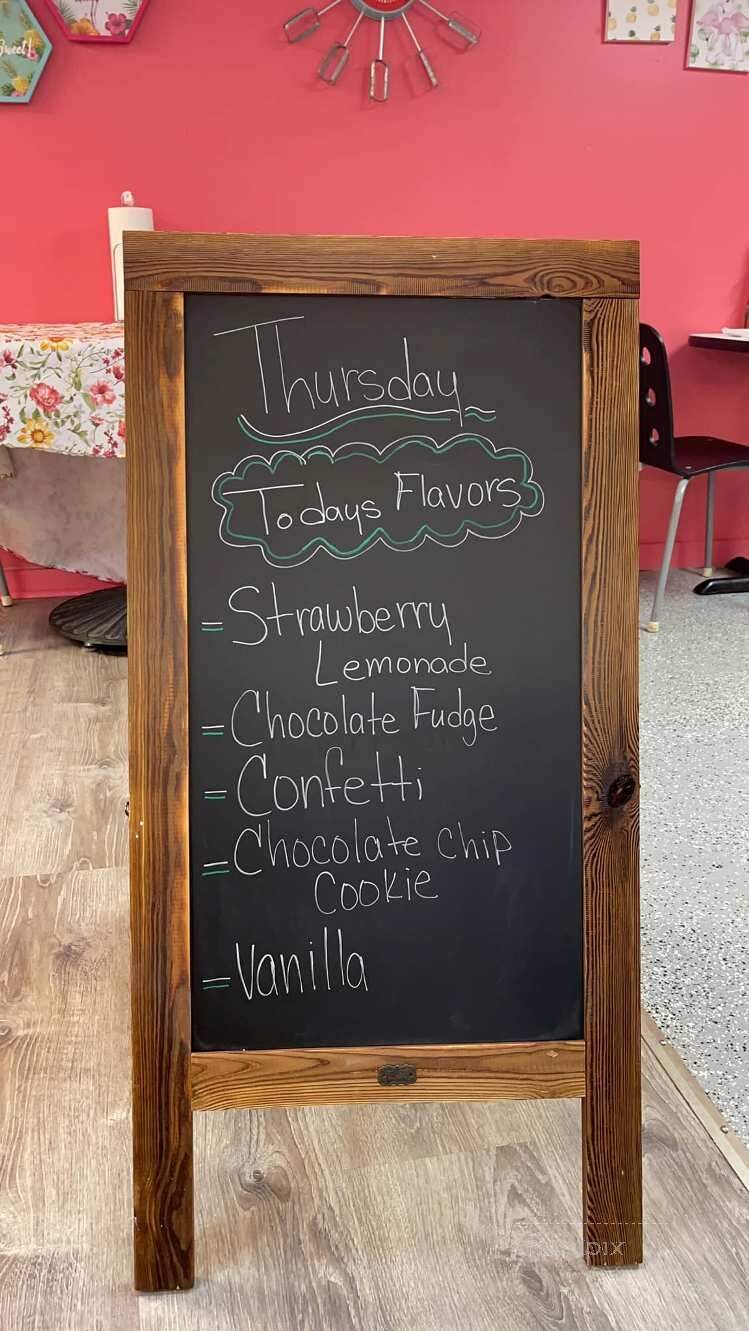 Sweet!
Thursday
Todays Flavors
= Strawberry
Lemonade
= Chocolate Fudge
= Confetti
= Chocolate Chip
Cookie
= Vanilla